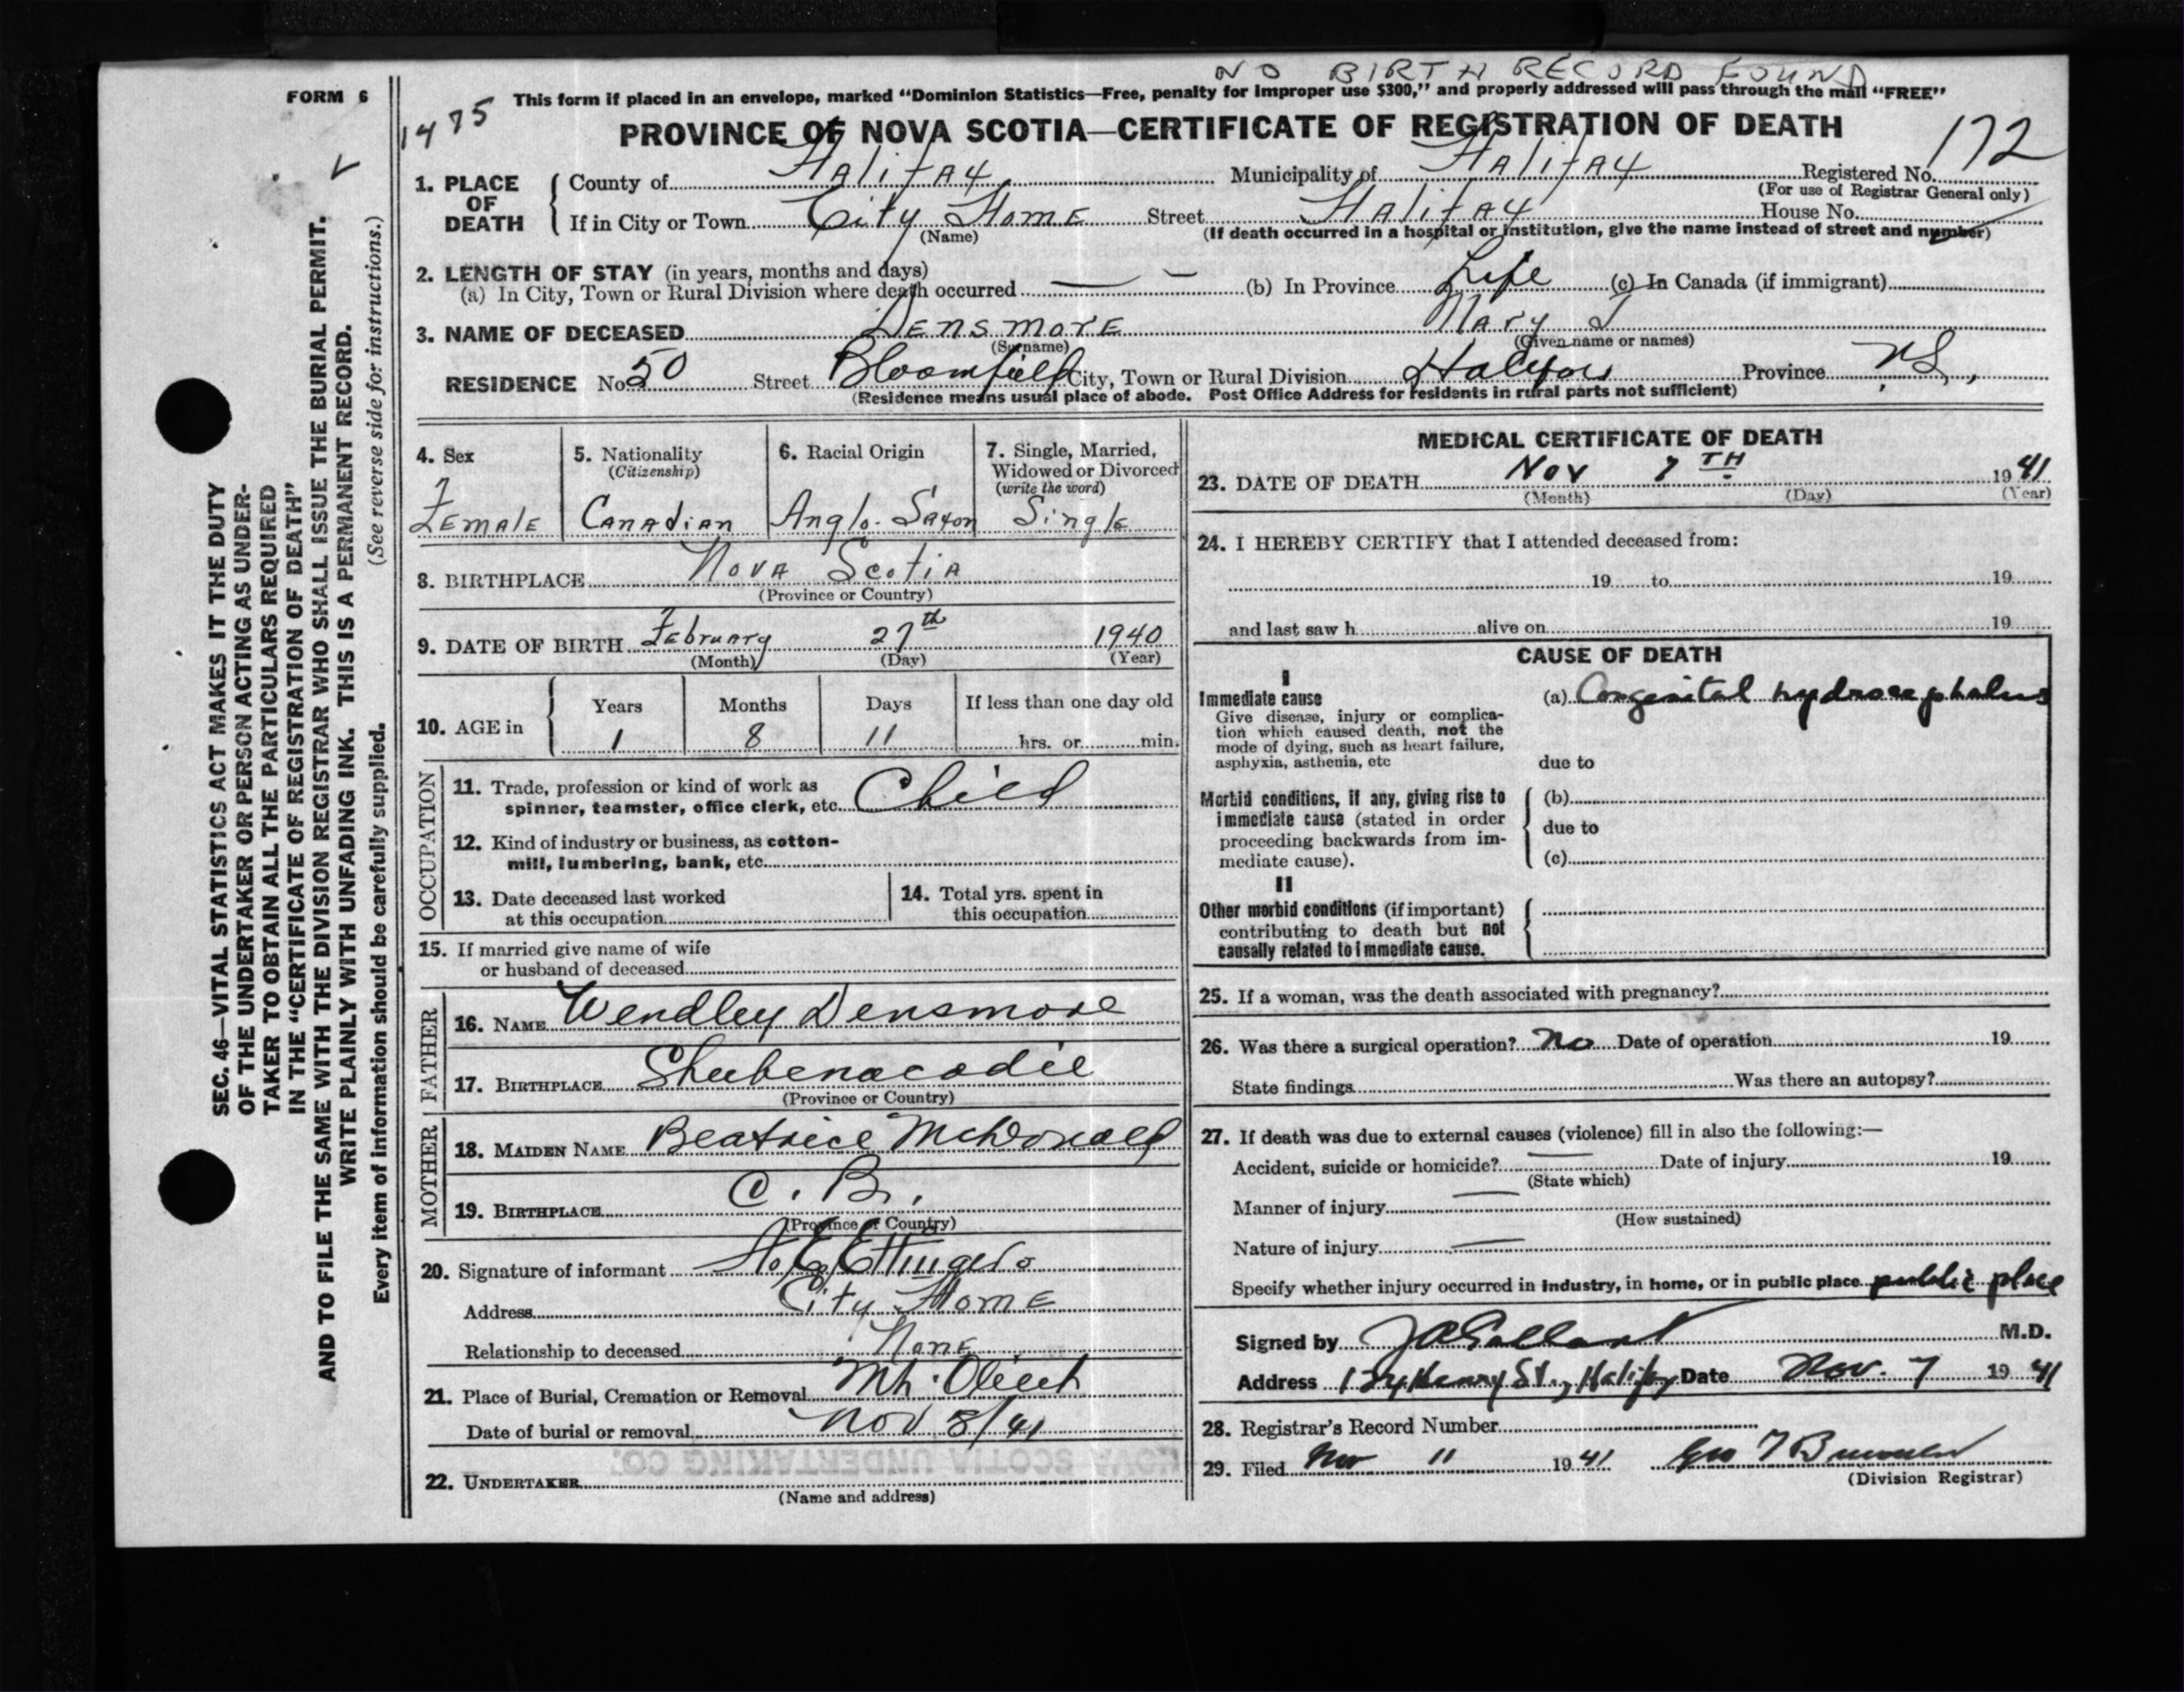 NO BIRTH RECORD FOUND
FORM 6
This form if placed in an envelope, marked "Dominion Statistics—Free, penalty for improper use $300," and properly addressed will pass through the mail "FREE"
1475
PROVINCE OF NOVA SCOTIA—CERTIFICATE OF REGISTRATION OF DEATH
172
1. PLACE OF DEATH
County of Halifax Municipality of Halifax Registered No.
(For use of Registrar General only)
If in City or Town City Home Street Halifax House No.
(Name) (If death occurred in a hospital or institution, give the name instead of street and number)
2. LENGTH OF STAY (in years, months and days)
(a) In City, Town or Rural Division where death occurred — (b) In Province Life (c) In Canada (if immigrant)
3. NAME OF DECEASED Densmore Mary J
(Surname) (Given name or names)
RESIDENCE No 50 Street Bloomfield City, Town or Rural Division Halifax Province N.S.,
(Residence means usual place of abode. Post Office Address for residents in rural parts not sufficient)
4. Sex
Female
5. Nationality
(Citizenship)
Canadian
6. Racial Origin
Anglo-Saxon
7. Single, Married,
Widowed or Divorced
(write the word)
Single
8. BIRTHPLACE Nova Scotia
(Province or Country)
9. DATE OF BIRTH February 27th 1940
(Month) (Day) (Year)
10. AGE in
Years Months Days If less than one day old
1 8 11 hrs. or min.
OCCUPATION
11. Trade, profession or kind of work as
spinner, teamster, office clerk, etc. Child
12. Kind of industry or business, as cotton-
mill, lumbering, bank, etc.
13. Date deceased last worked
at this occupation
14. Total yrs. spent in
this occupation
15. If married give name of wife
or husband of deceased
FATHER
16. NAME Wendley Densmore
17. BIRTHPLACE Shubenacadie
(Province or Country)
MOTHER
18. MAIDEN NAME Beatrice McDonald
19. BIRTHPLACE C.B.
(Province or Country)
20. Signature of informant Ettinger
Address City Home
Relationship to deceased None
21. Place of Burial, Cremation or Removal Mt. Olivet
Date of burial or removal Nov 8/41
NOVA SCOTIA UNDERTAKING CO.
22. UNDERTAKER
(Name and address)
MEDICAL CERTIFICATE OF DEATH
23. DATE OF DEATH Nov 7TH 1941
(Month) (Day) (Year)
24. I HEREBY CERTIFY that I attended deceased from:
19 to 19
and last saw h alive on 19
CAUSE OF DEATH
I
Immediate cause
Give disease, injury or complica-
tion which caused death, not the
mode of dying, such as heart failure,
asphyxia, asthenia, etc
(a) Congenital hydrocephalus
due to
Morbid conditions, if any, giving rise to
immediate cause (stated in order
proceeding backwards from im-
mediate cause).
(b)
due to
(c)
II
Other morbid conditions (if important)
contributing to death but not
causally related to immediate cause.
25. If a woman, was the death associated with pregnancy?
26. Was there a surgical operation? No Date of operation 19
State findings Was there an autopsy?
27. If death was due to external causes (violence) fill in also the following:—
Accident, suicide or homicide? — Date of injury 19
(State which)
Manner of injury —
(How sustained)
Nature of injury —
Specify whether injury occurred in industry, in home, or in public place public place
Signed by J A Gallant M.D.
Address 124 Henry St., Halifax Date Nov. 7 1941
28. Registrar's Record Number
29. Filed Nov 11 1941
(Division Registrar)
SEC. 46—VITAL STATISTICS ACT MAKES IT THE DUTY
OF THE UNDERTAKER OR PERSON ACTING AS UNDER-
TAKER TO OBTAIN ALL THE PARTICULARS REQUIRED
IN THE "CERTIFICATE OF REGISTRATION OF DEATH"
AND TO FILE THE SAME WITH THE DIVISION REGISTRAR WHO SHALL ISSUE THE BURIAL PERMIT.
WRITE PLAINLY WITH UNFADING INK. THIS IS A PERMANENT RECORD.
Every item of information should be carefully supplied. (See reverse side for instructions.)